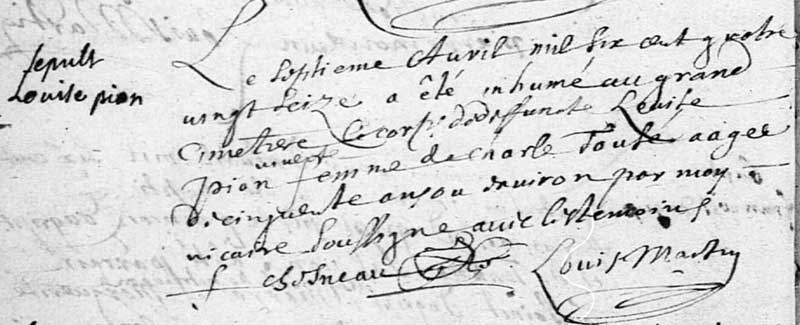 sepult
Louise pion
Le Septieme Avril mil six cent quatre
vingt seize a été inhumé au grand
Cimetiere Le corps de deffuncte Louise
pion femme de Charle
aagee
de cinquente ans ou environ par moy
vicaire Soussigne avec les temoins
Chesneau Louis Martin